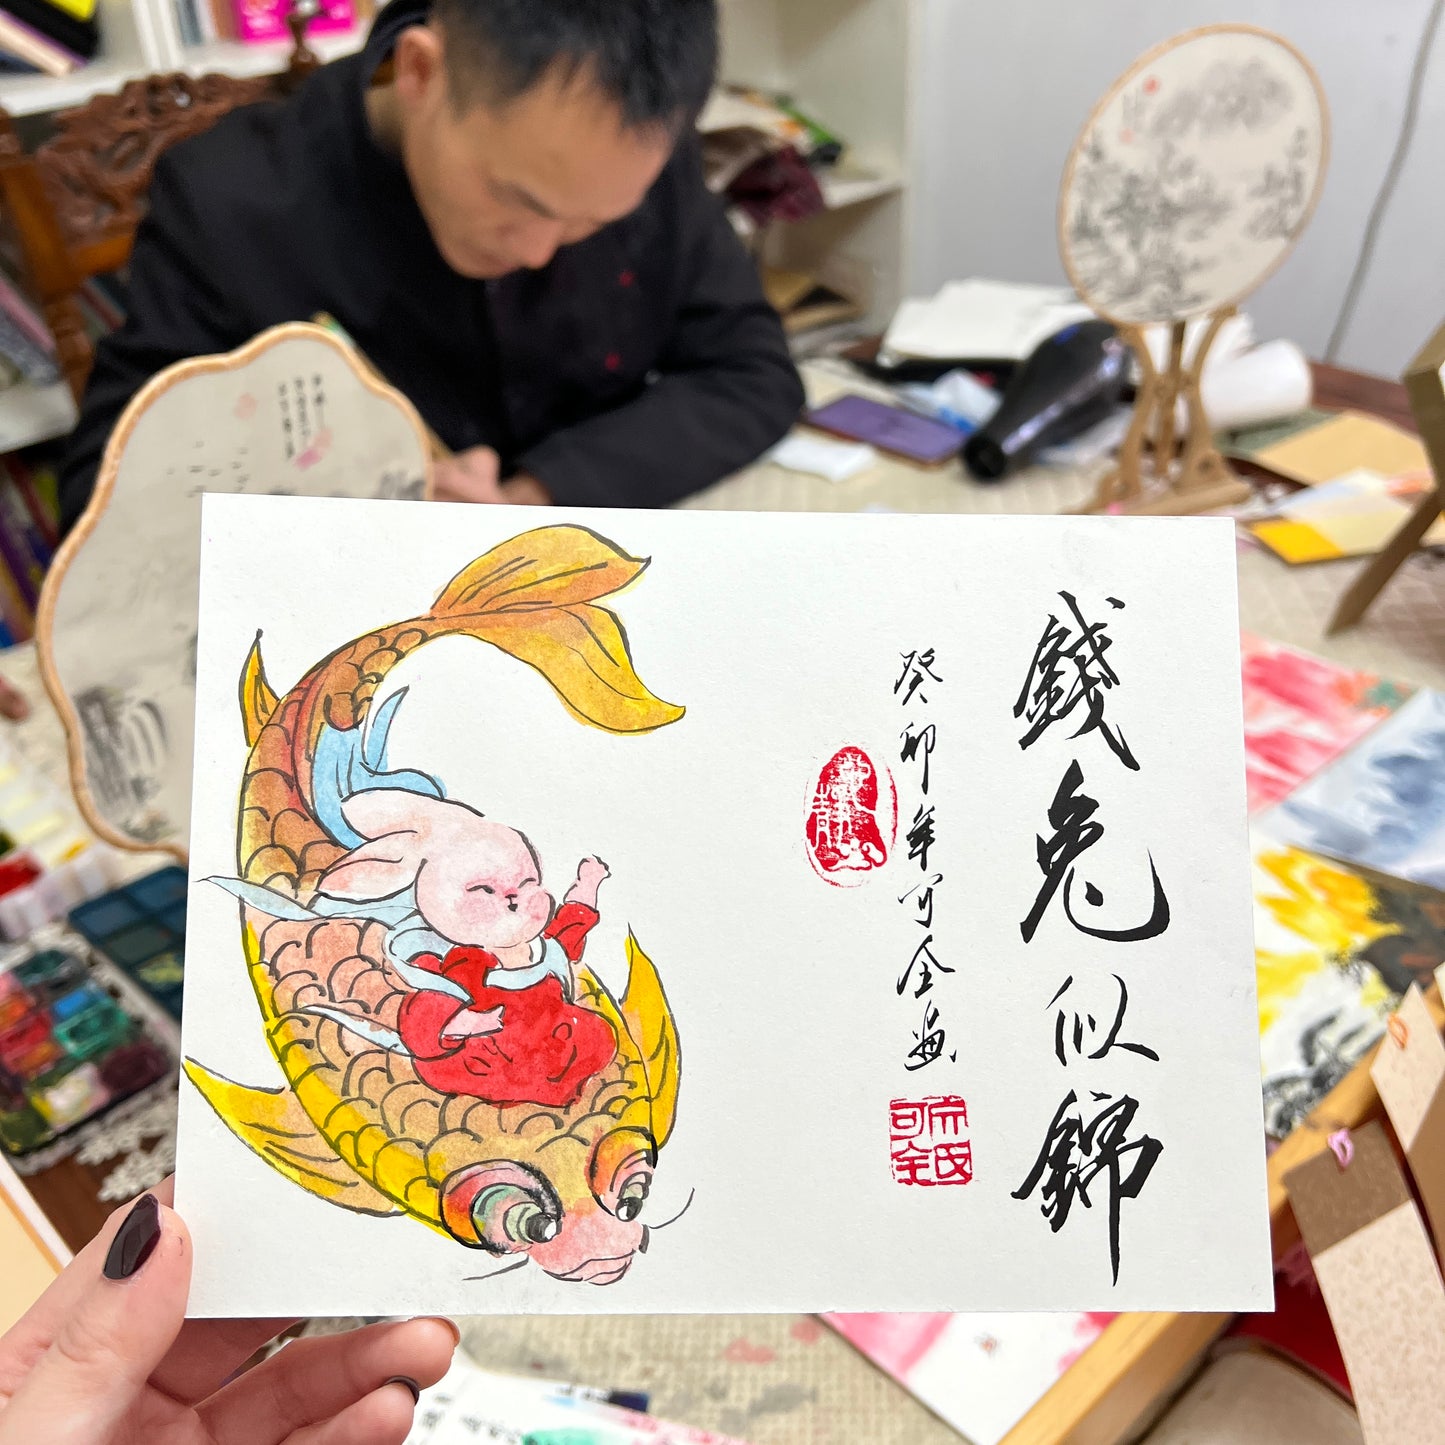 錢兔似錦
癸卯年可全畫